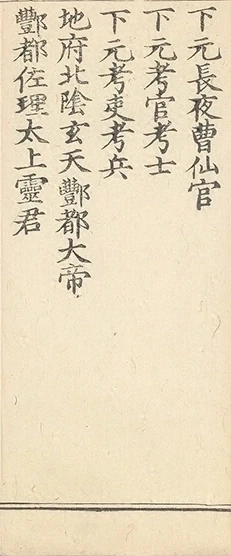 下元長夜曹仙官
下元考官考士
下元考吏考兵
地府北陰玄天酆都大帝
酆都佐理太上靈君